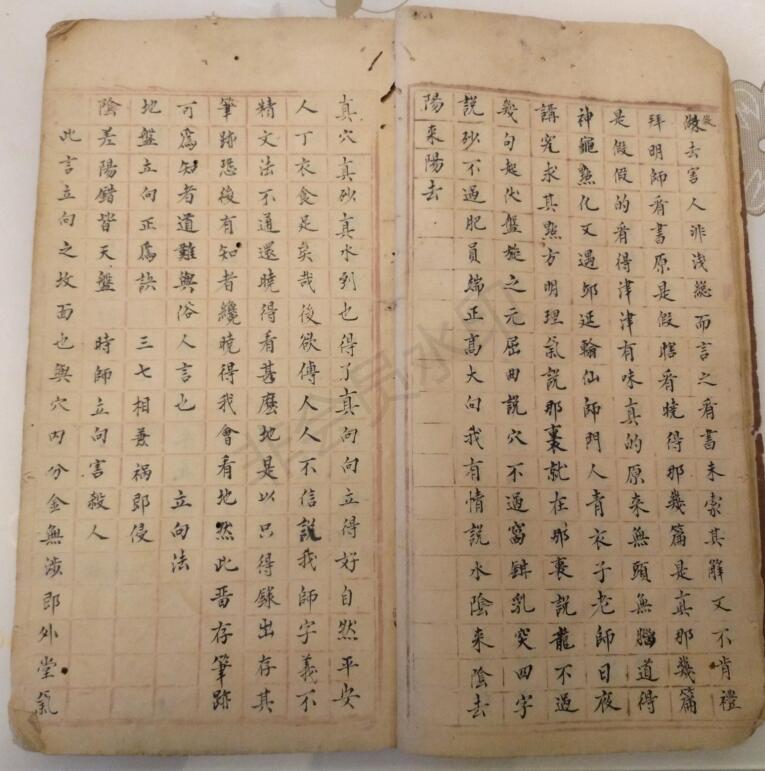 做去害人非浅總而言之看書未索其解又不肯禮
拜明師看書原是假瞎看曉得那幾篇是真那幾篇
是假假的看得津津有味真的原来無頭無腦道得
神龜點化又遇邱延翰仙師門人青衣子老師日夜
講究求其點方明理氣說那裏就在那裏說龍不過
幾句起伏盤旋之元屈曲說穴不過窩鉗乳突四字
說砂不過肥員端正高大向我有情說水陰来陰去
陽来陽去
真穴真砂真水到也得了真向向立得好自然平安
人丁衣食足矣哉後欲傳人人不信說我師字義不
精文法不通還曉得看甚麼地是以只得錄出存其
筆跡恐後有知者纔曉得我會看地然此畨存筆跡
可為知者道難與俗人言也 立向法
地盤立向正為訣 三七相兼祸即侵
陰差陽錯皆天盤 時師立向害殺人
此言立向之故面也與穴内分金無涉即外堂氣